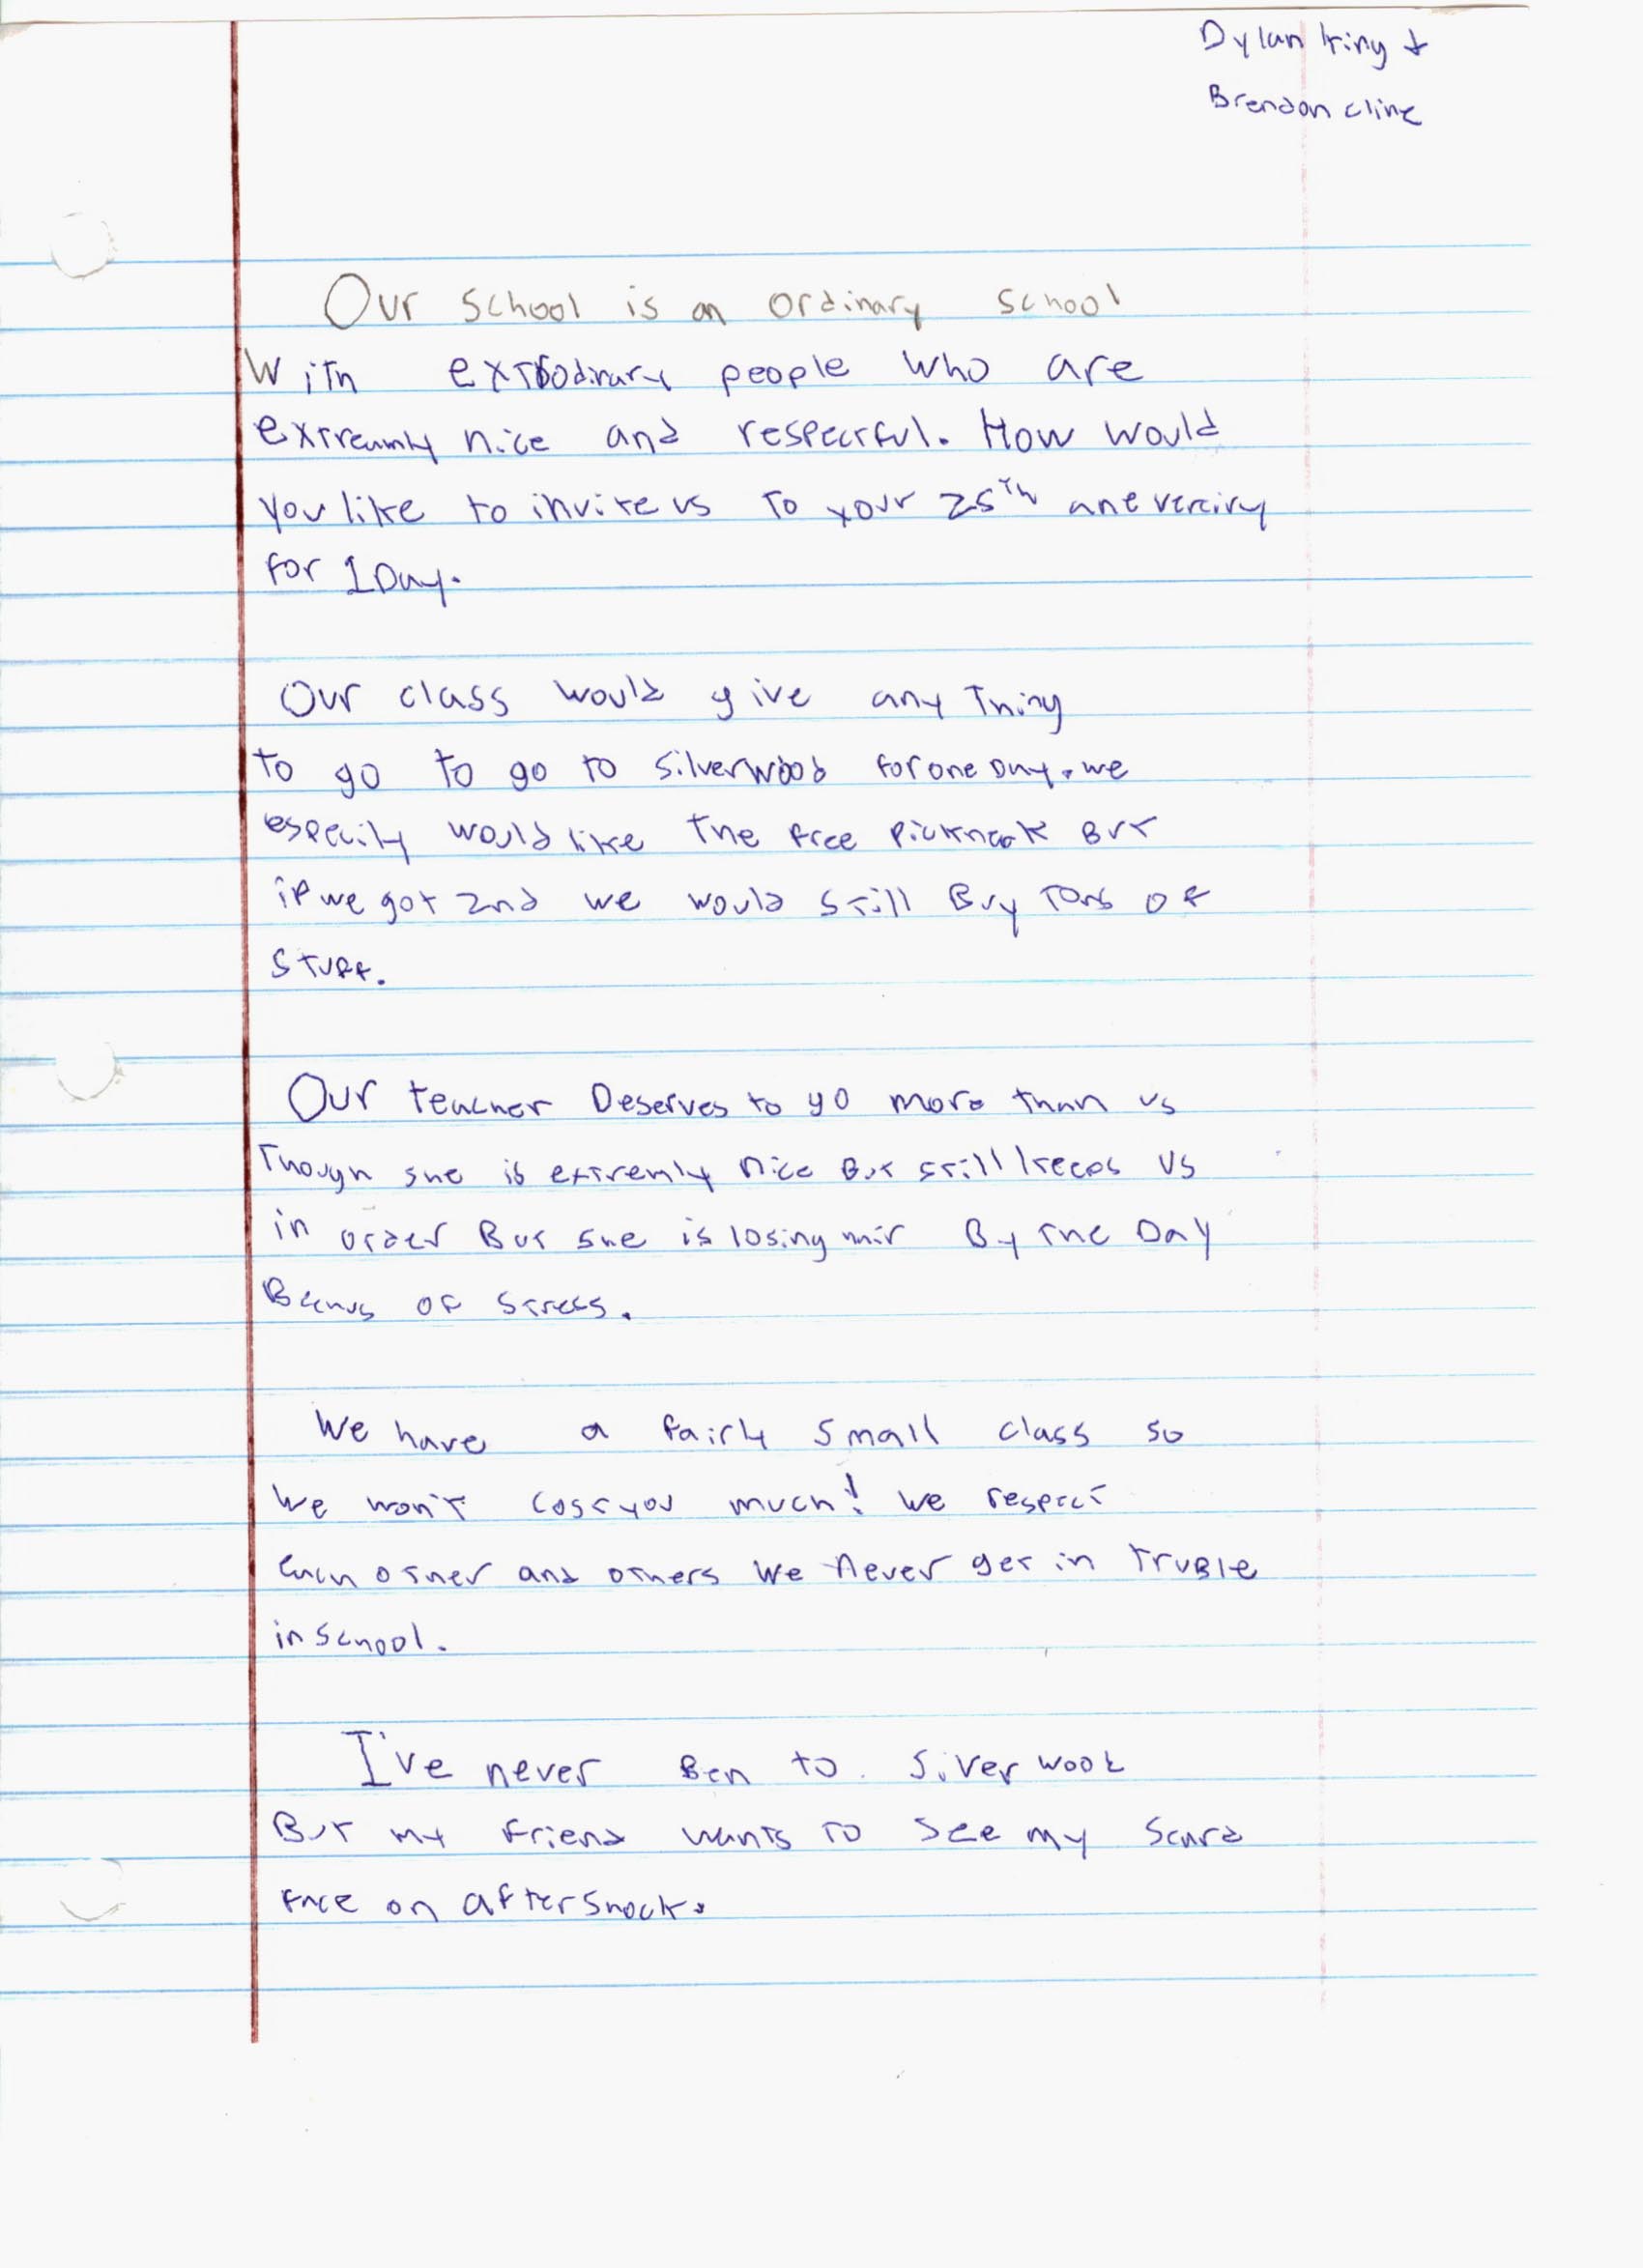 Dylan King &
Brendan Cline
Our school is an ordinary school
With extrodinary people who are
extreamly nice and respectful. How would
you like to invite us to your 25th aneverciry
for 1 Day.
Our class would give any Thing
to go to go to silverwood for one Day. we
especily would like The free Picknook But
if we got 2nd we would still Buy Tons of
Stuff.
Our teacher Deserves to go more than us
Though she is extremly nice But still keeps us
in order But she is losing By The Day
of stress.
We have a fairly small class so
We won't cost you much! we respect
Each other and others We Never get in Truble
in School.
I've never Ben to Silver wood
But my friend wants to See my Scard
Face on aftershock.